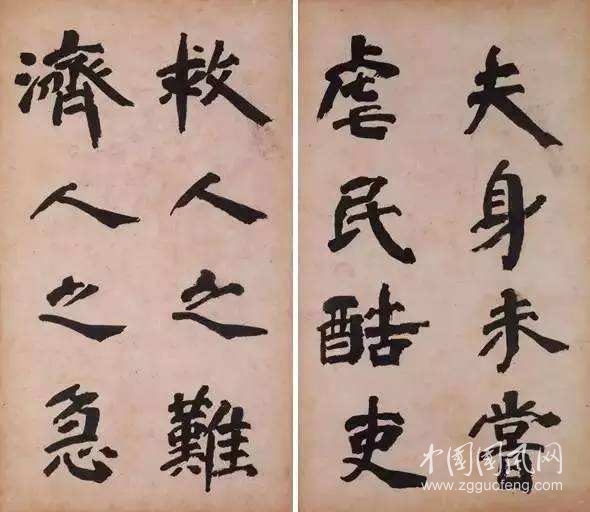 夫身未嘗
虐民酷吏
救人之難
濟人之急
中国国风网
www.zgguofeng.com